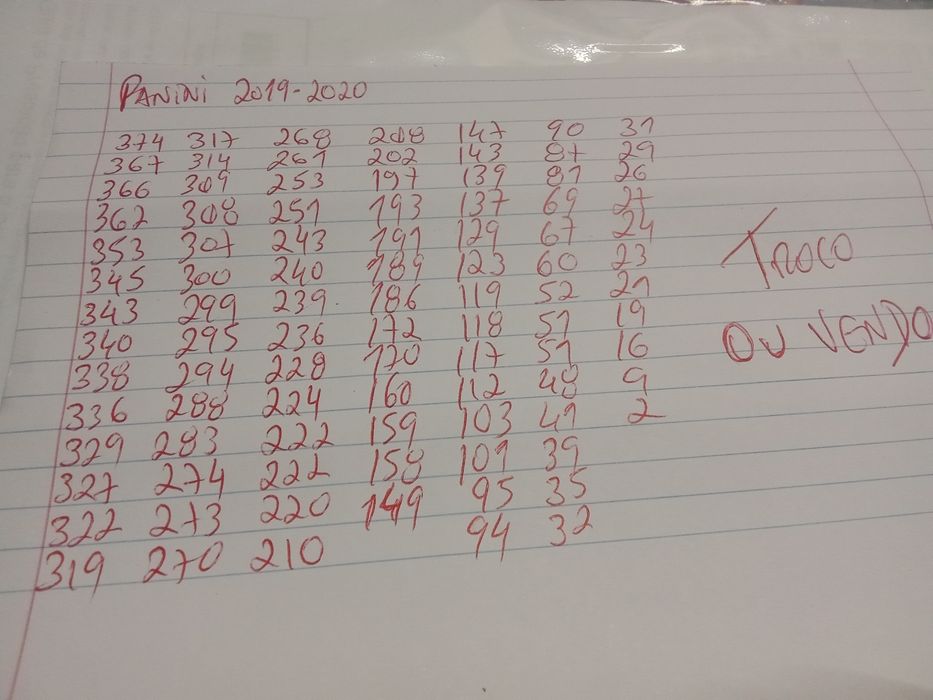 PANINI 2019-2020
374 317 268 208 147 90 31
367 314 261 202 143 87 29
366 309 253 197 139 81 26
362 308 251 193 137 69 27
353 307 243 191 129 67 24
345 300 240 189 123 60 23
343 299 239 186 119 52 21
340 295 236 172 118 51 19
338 294 228 170 117 51 16
336 288 224 160 112 48 9
329 283 222 159 103 41 2
327 274 222 158 101 39
322 273 220 149 95 35
319 270 210 94 32
TROCO
OU VENDO